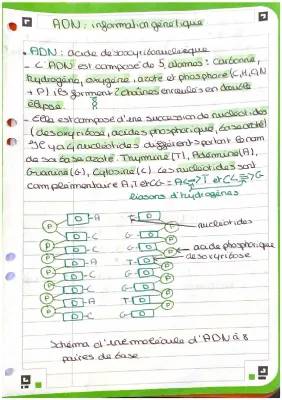 ADN : information génétique
• ADN : acide desoxyribonucléique
- L'ADN est composé de 5 atomes : carbone,
hydrogène, oxygène, azote et phosphore (C, H, O, N
+ P) ils forment 2 chaînes enroulés en double
élipse.
- Elle est composé d'une succession de nucléotides
(desoxyribose, acide phosphorique, base azoté)
Il y a 4 nucléotides différents portant le nom
de sa base azoté. Thymine (T), Adénine (A),
Guanine (G), Cytosine (C). Les nucléotides sont
complémentaire A, T et CG = A T et C G
liaisons d'hydrogènes
P D -A D
P D -C G- D P nucléotides
P D -C G- D P
P D -A T- D P acide phosphorique
desoxyribose
P D -C G- D P
P D -C G- D P
P D -A T- D P
P D -C G- D P
Schéma d'une molécule d'ADN à 8
paires de base